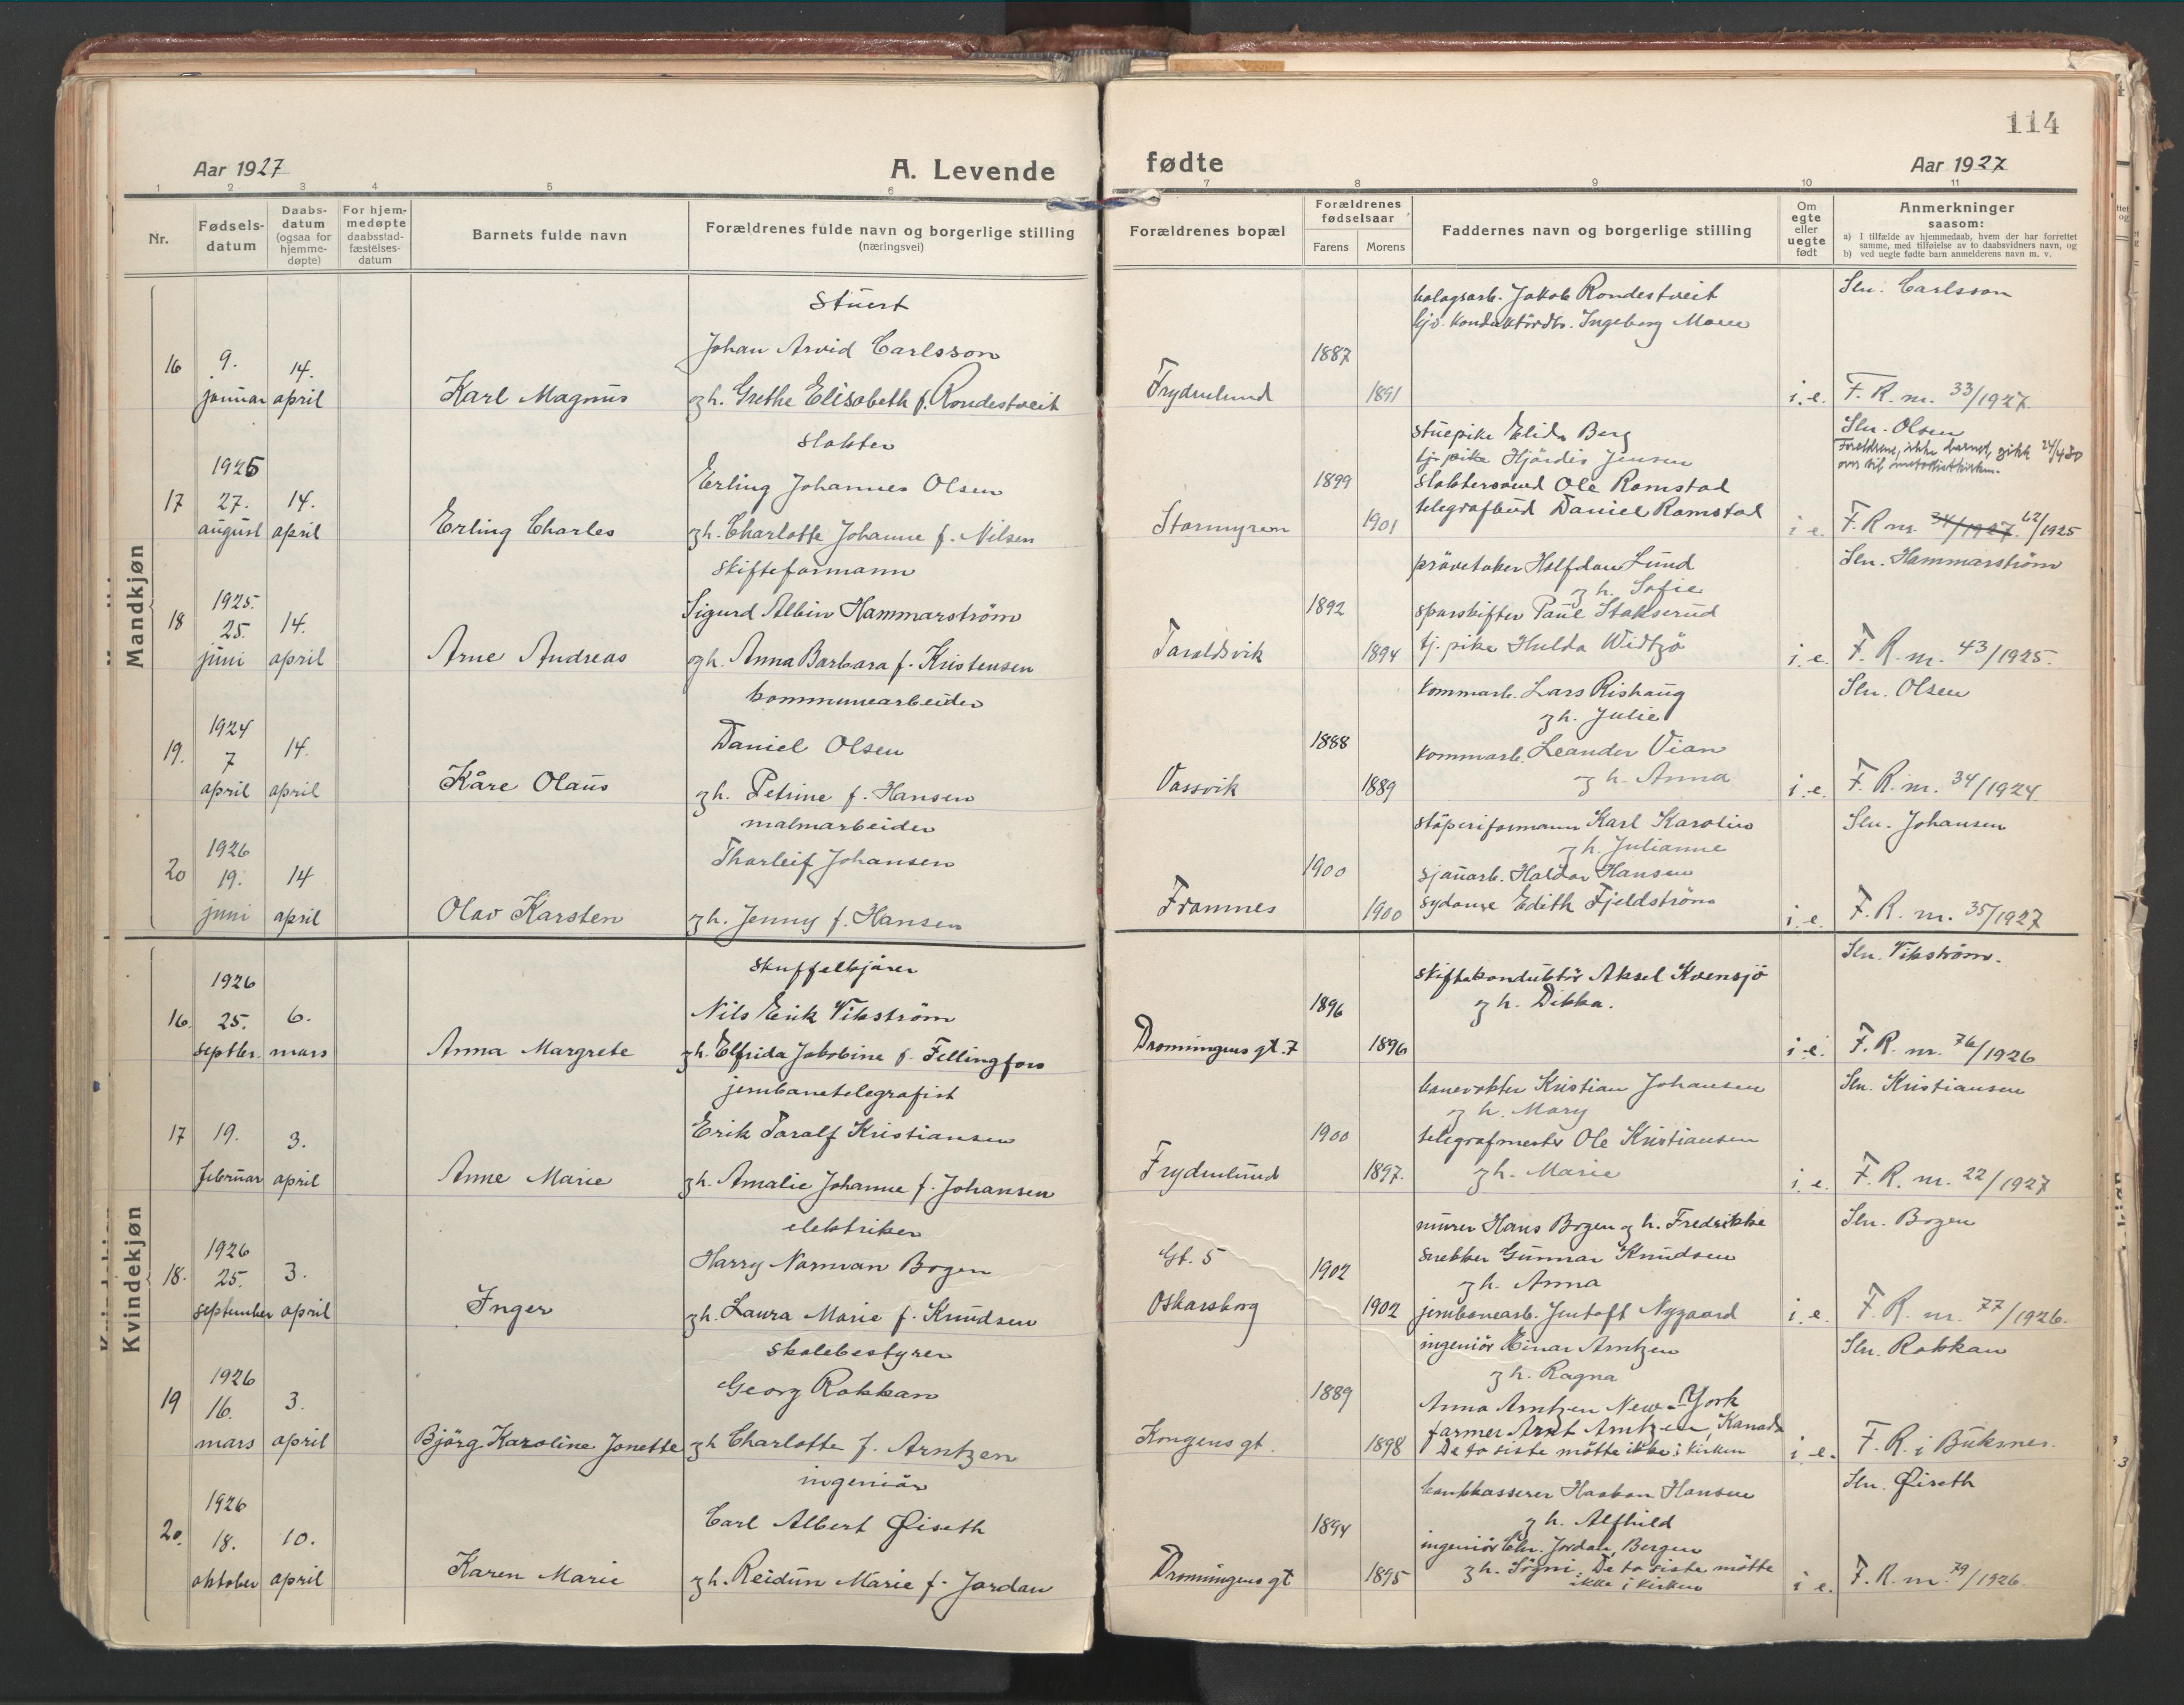 114
Aar 1927
A. Levende
fødte
Aar 1927
1 2 3 4 5 6 7 8 9 10 11
Nr.
Fødsels-
datum
Daabs-
datum
(ogsaa for
hjemme-
døpte)
For hjem-
medøpte
daabsstad-
fæstelses-
datum
Barnets fulde navn
Forældrenes fulde navn og borgerlige stilling
(næringsvei)
Forældrenes bopæl
Forældrenes
fødselsaar
Farens Morens
Faddernes navn og borgerlige stilling
Om
egte
eller
uegte
født
Anmerkninger
saasom:
a) I tilfælde av hjemmedaab, hvem der har forrettet
samme, med tilføielse av to daabsvidners navn, og
b) ved uegte fødte barn anmelderens navn m. v.
Mandkjøn
16
9.
januar
14.
april
Karl Magnus
Stuert
Johan Arvid Carlsson
og h. Grethe Elisabeth f. Rondestveit
Frydenlund
1887
1891
bolagsarb. Jakob Rondestveit
Ingeborg Moen
i. e.
Sln. Carlsson
F. R. nr. 33/1927.
17
1925
27.
august
14.
april
Erling Charles
slakter
Erling Johannes Olsen
og h. Charlotte Johanne f. Nilsen
Stormyren
1899
1901
stuepike Elida Berg
tj. pike Hjördis Jensen
slaktersvend Ole Ramstad
telegrafbud Daniel Ramstad
i e.
Sln. Olsen
Foreldrene, ikke barnet, gikk 24/4 30
over til metodistkirken.
F. R nr. 34/1927. 62/1925
18
1925.
25.
juni
14.
april
Arne Andreas
skifteformann
Sigurd Albin Hammarström
og h. Anna Barbara f. Kristensen
Taraldsvik
1892
1894
prövetaker Halfdan Lund
og h. Sofie
sporskifter Paul Stakserud
tj. pike Hulda Widtzö
i. e.
Sln. Hammarström
F. R. nr. 43/1925.
19.
1924
7
april
14.
april
Kåre Olaus
kommunearbeider
Daniel Olsen
og h. Petrine f. Hansen
Vassvik
1888
1889
kommarb. Lars Rishaug
og h. Julie
kommarb. Leander Vian
og h. Anna
i. e.
Sln. Olsen
F. R. nr. 34/1924.
20
1926
19.
juni
14
april
Olav Karsten
malmarbeider
Thorleif Johansen
og h. Jenny f. Hansen
Framnes
1900
1900
stöperiformann Karl Karolius
og h. Julianne
sjauarb. Haldor Hansen
sydame Edith Fjeldström
i. e.
Sln. Johansen
F. R. nr. 35/1927
Kvindekjøn
16.
1926
25.
septbr.
6.
mars
Anna Margrete
skuffelkjörer
Nils Erik Vikström
og h. Elfrida Jakobine f. Fellingfors
Dronningens gt. 7
1896
1896
skiftekonduktör Aksel Kvensjö
og h. Dikka.
i. e.
Sln. Vikström.
F. R. nr. 76/1926
17
19.
februar
3.
april
Anne Marie
jernbanetelegrafist
Erik Toralf Kristiansen
og h. Amalie Johanne f. Johansen
Frydenlund
1900
1897.
banevokter Kristian Johansen
og h. Mary
telegrafmester Ole Kristiansen
og h. Marie
i. e.
Sln. Kristiansen
F. R. nr. 22/1927
18.
1926
25.
september
3.
april
Inger
elektriker
Harry Norman Bogen
og h. Laura Marie f. Knudsen
Gt. 5
Oskarsborg
1902
1902
murer Hans Bogen og h. Fredrikke
snekker Gunnar Knudsen
og h. Anna
jernbanearb. Jentoft Nygaard
i. e.
Sln. Bogen
F. R. nr. 77/1926.
19
1926
16.
mars
3.
april
Björg Karoline Jonette
skolebestyrer
Georg Rokkan
og h Charlotte f. Arntzen
Kongens gt.
1889
1898
ingeniör Einar Arntzen
og h. Ragna
Anna Arntzen New-York
farmer Arnt Arntzen, Kanada
De to siste mötte ikke i kirken
i e.
Sln. Rokkan
F. R. i Buksnes.
20.
1926
18.
oktober
10.
april
Karen Marie
ingeniör
Carl Albert Øiseth
og h. Reidun Marie f. Jordan
Dronningens gt
1894
1895
bankkasserer Haakon Hansen
og h. Alfhild
ingeniör Chr. Jordan, Bergen
og h. Sögni. De to siste mötte
ikke i kirken
i e.
Sln. Øiseth
F. R. nr. 79/1926.